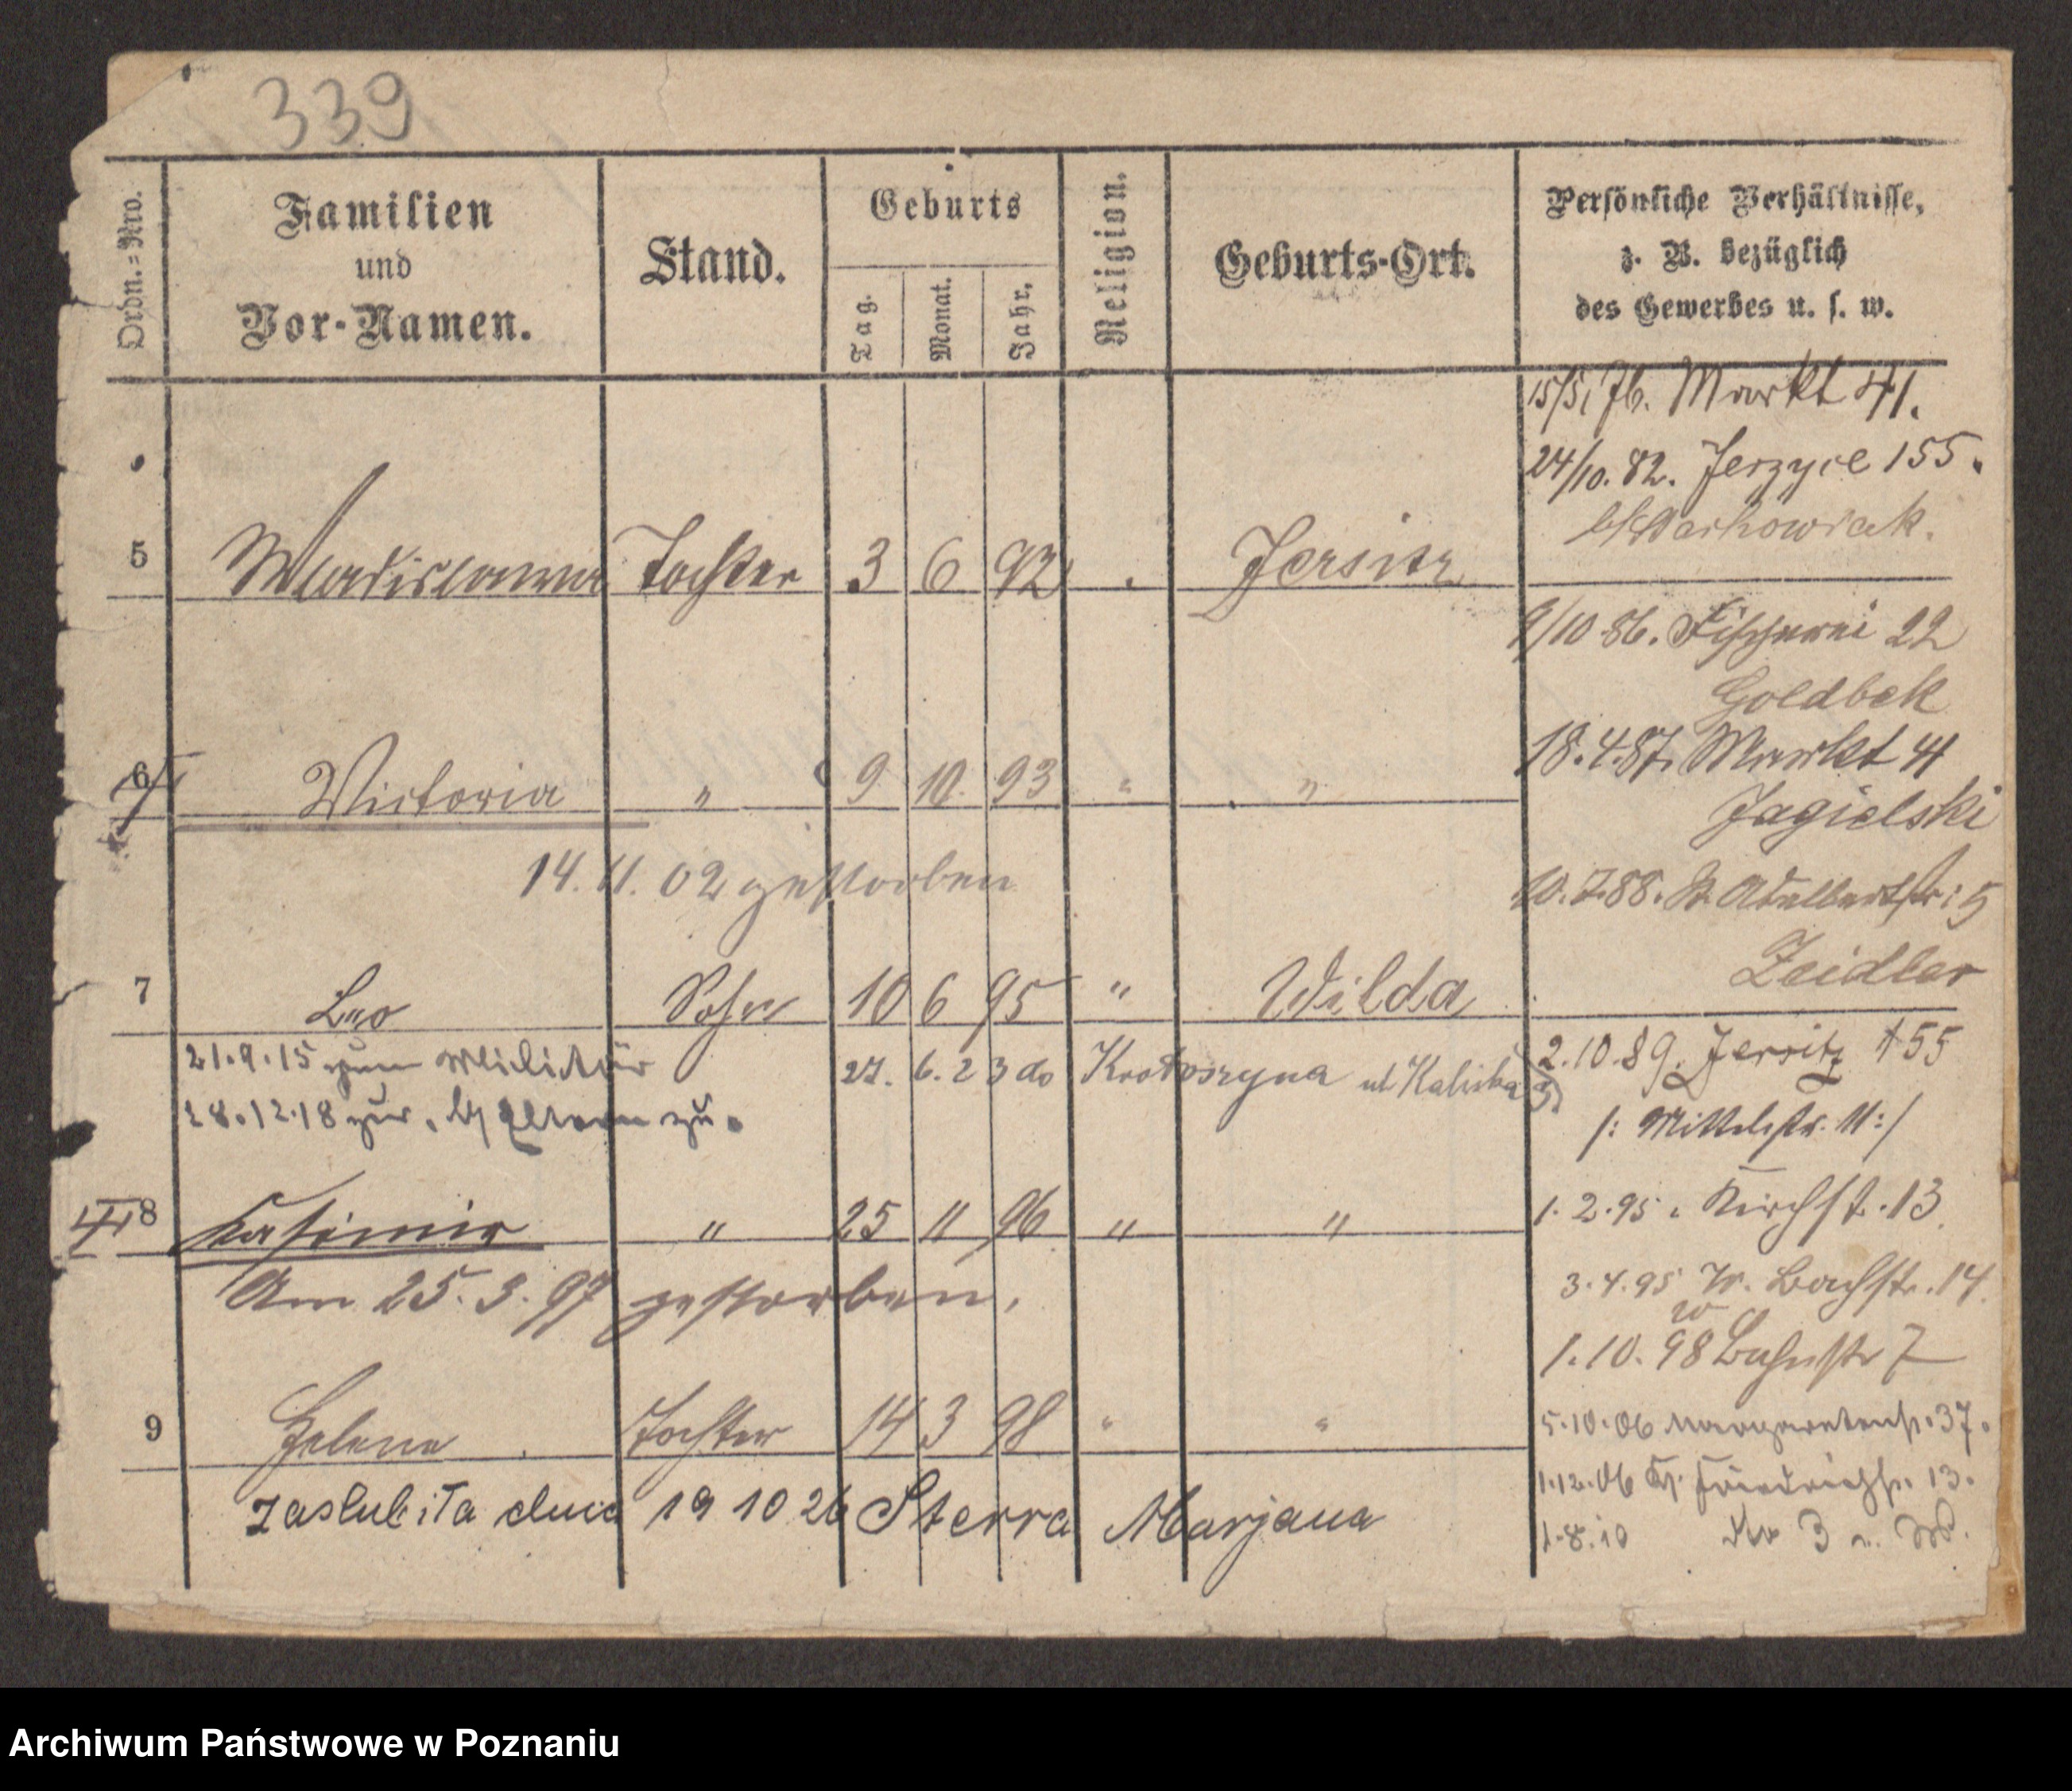 339
Ordn.=Nro.
Familien
und
Vor-Namen.
Stand.
Geburts
Tag.
Monat.
Jahr.
Religion.
Geburts-Ort.
Persönliche Verhältnisse,
z. B. bezüglich
des Gewerbes u. s. w.
15/5. 76. Markt 41.
24/10. 82. Jerzyce 155.
5 Wladislawa Tochter 3 6 92 Jersitz
9/10 86. Fischerei 22
Goldbek
6 Victoria " 9 10. 93 " "
18.4.87. Markt 41
Jagielski
14. 11. 02 gestorben
10.7.88. St. Adalbertstr: 5
Zeidler
7 Leo Sohn 10 6 95 " Wilda
21.9.15 zum Militär
27. 6. 23 do Krotoszyna ul Kaliska
2.10.89. Jersitz 155
28.12.18 zur. Eltern zu.
/: Mittelstr. 11:/
8 Kasimir " 25 11 96 " "
1. 2.95. Kirchst. 13
Am 25. 3. 97 gestorben.
3.4.95 W. Bachstr. 14.
1.10. 98 Bahnstr 7
9 Helene Tochter 14 3 98 " "
5.10.06 Margaretenst. 37.
Zaslubiła dnia 19 10 26 Sterra Marjana
1.12.06 Friedrichst. 13.
1.8.10
Archiwum Państwowe w Poznaniu